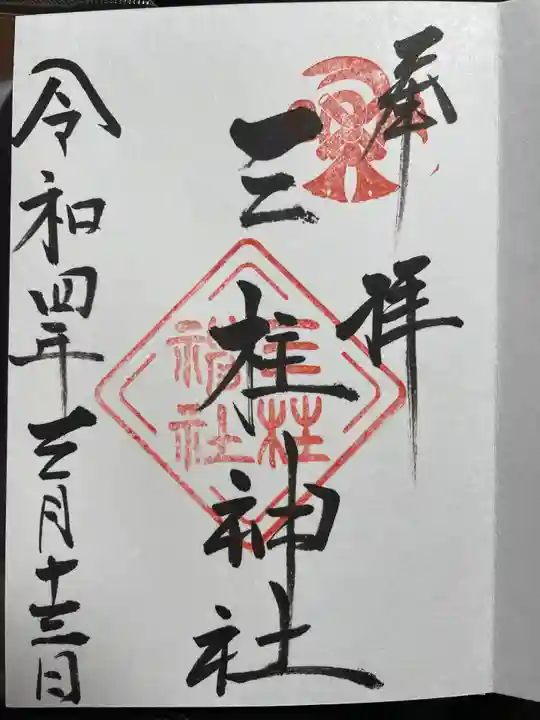 奉拝
三柱神社
三柱神社
令和四年三月十三日